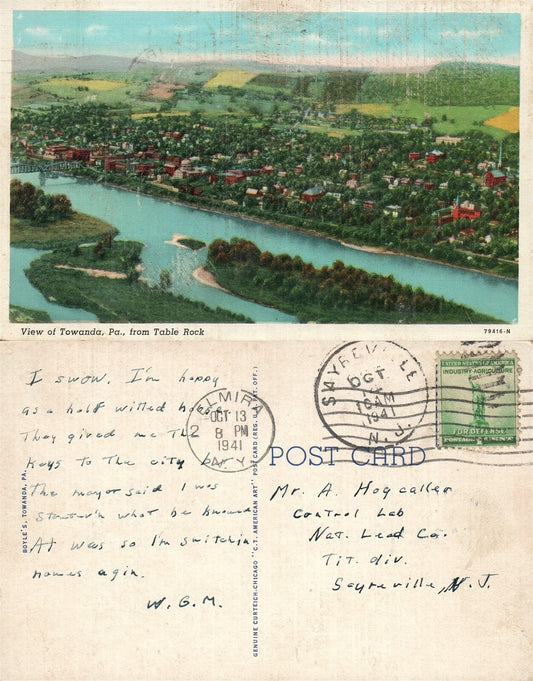 View of Towanda, Pa., from Table Rock
79416-N
I swow. I'm happy
as a half witted
They gived me The
Keys to The city
The mayor said I was
what he knowed
At was so I'm switchin
homes agin.
W.G.M.
ELMIRA
OCT 13
8 PM
1941
N.Y.
2
BOYLE'S, TOWANDA, PA.
GENUINE CURTEICH-CHICAGO "C.T. AMERICAN ART" POST CARD (REG. U.S. PAT. OFF.)
SAYREVILLE
OCT
AM
1941
N.J.
UNITED STATES OF AMERICA
INDUSTRY-AGRICULTURE
FOR DEFENSE
POST CARD
Mr. A. Hogcaller
Control Lab
Nat. Lead Co.
Tit. div.
Sayreville, N. J.